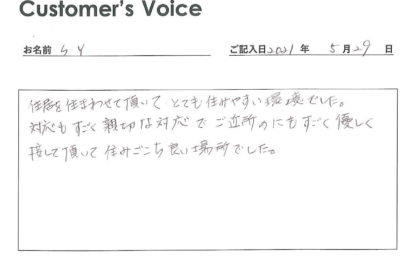 Customer's Voice
お名前 S Y ご記入日2021年 5月29日
住居を住まわせて頂いて とても住みやすい環境でした。
対応も すごく 親切な対応で ご近所のにもすごく 優しく
接して頂いて 住みごこち良い場所でした。